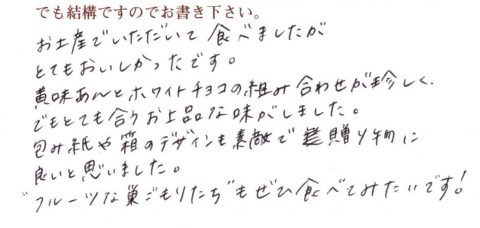 でも結構ですのでお書き下さい。
お土産でいただいて食べましたが
とてもおいしかったです。
黄味あんとホワイトチョコの組み合わせが珍しく、
でもとても合うお上品な味がしました。
包み紙や箱のデザインも素敵で贈り物に
良いと思いました。
"フルーツな巣ごもりたち"もぜひ食べてみたいです!